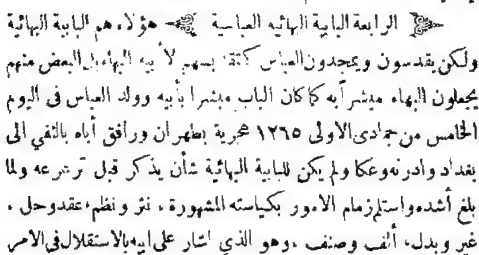 الرابعة البابية البهائيه العباسية هؤلاء هم البابية البهائية
ولكن يقدسون ويمجدون العباس كتقديسهم لأبيه البهاء بل البعض منهم
يجعلون البهاء مبشراً به كما كان الباب مبشرا بأبيه وولد العباس فى اليوم
الخامس من جمادى الاولى ١٢٦٥ هجرية بطهران ورافق أباه بالنفي الى
بغداد وادرنه وعكا ولم يكن للبابية البهائية شأن يذكر قبل ترعرعه ولما
بلغ أشده واستلم زمام الامور بكياسته المشهورة ، نثر ونظم ، عقد وحل ،
غير وبدل ، ألف وصنف ، وهو الذي اشار على ابيه بالاستقلال فى الامر